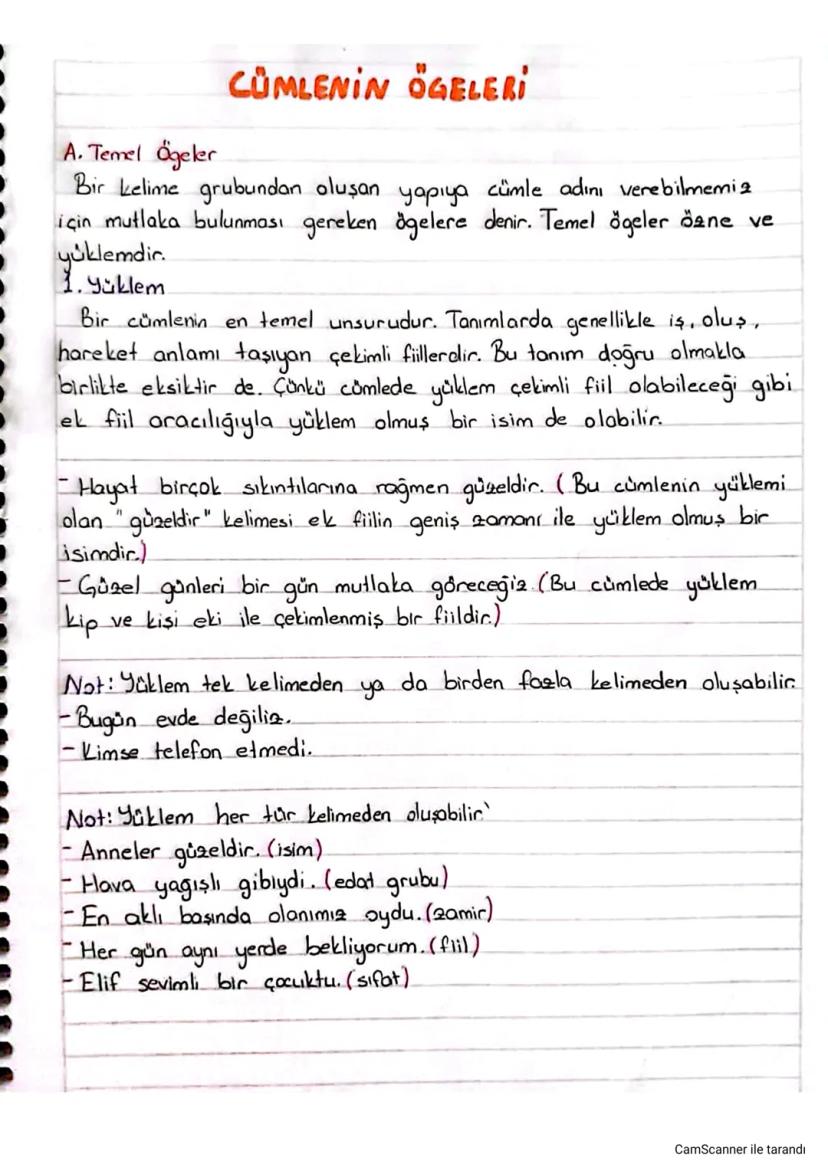 CÜMLENİN ÖGELERİ
A. Temel Ögeler
Bir kelime grubundan oluşan yapıya cümle adını verebilmemiz
için mutlaka bulunması gereken ögelere denir. Temel ögeler özne ve
yüklemdir.
1. Yüklem
Bir cümlenin en temel unsurudur. Tanımlarda genellikle iş, oluş,
hareket anlamı taşıyan çekimli fiillerdir. Bu tanım doğru olmakla
birlikte eksiktir de. Çünkü cümlede yüklem çekimli fiil olabileceği gibi
ek fiil aracılığıyla yüklem olmuş bir isim de olabilir.
- Hayat birçok sıkıntılarına rağmen güzeldir. (Bu cümlenin yüklemi
olan "güzeldir" kelimesi ek fiilin geniş zamanı ile yüklem olmuş bir
isimdir.)
- Güzel günleri bir gün mutlaka göreceğiz. (Bu cümlede yüklem
kip ve kişi eki ile çekimlenmiş bir fiildir.)
Not: Yüklem tek kelimeden ya da birden fazla kelimeden oluşabilir.
- Bugün evde değiliz.
- Kimse telefon etmedi.
Not: Yüklem her tür kelimeden oluşabilir
- Anneler güzeldir. (isim)
- Hava yağışlı gibiydi. (edat grubu)
- En aklı başında olanımız oydu. (zamir)
- Her gün aynı yerde bekliyorum. (fiil)
- Elif sevimli bir çocuktu. (sıfat)
CamScanner ile tarandı